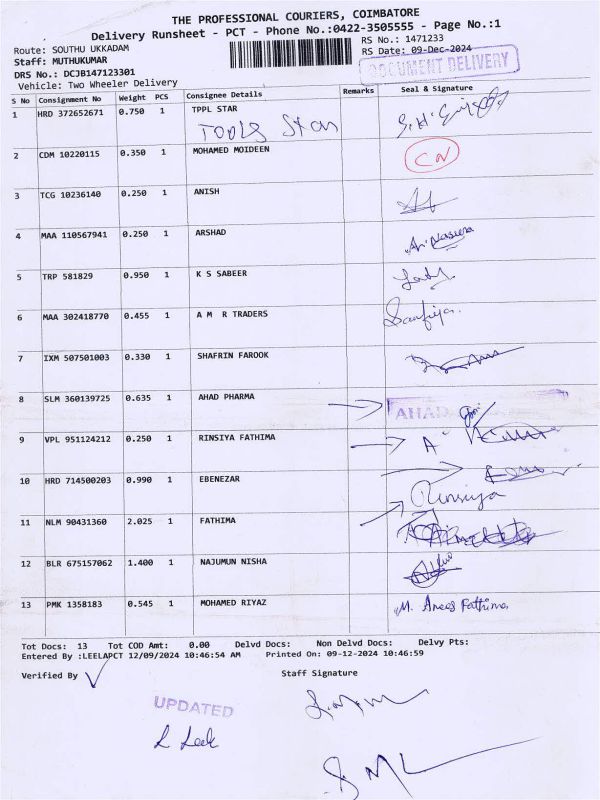 THE PROFESSIONAL COURIERS, COIMBATORE
Delivery Runsheet - PCT - Phone No.:0422-3505555 - Page No.:1
Route: SOUTHU UKKADAM
RS No.: 1471233
Staff: MUTHUKUMAR
RS Date: 09-Dec-2024
DRS No.: DCJB147123301
DOCUMENT DELIVERY
Vehicle: Two Wheeler Delivery
S No Consignment No Weight PCS Consignee Details Remarks Seal & Signature
1 HRD 372652671 0.750 1 TPPL STAR
Tools Star
2 CDM 10220115 0.350 1 MOHAMED MOIDEEN CN
3 TCG 10236140 0.250 1 ANISH
4 MAA 110567941 0.250 1 ARSHAD
5 TRP 581829 0.950 1 K S SABEER
6 MAA 302418770 0.455 1 A M R TRADERS
7 IXM 507501003 0.330 1 SHAFRIN FAROOK
8 SLM 360139725 0.635 1 AHAD PHARMA AHAD
9 VPL 951124212 0.250 1 RINSIYA FATHIMA
10 HRD 714500203 0.990 1 EBENEZAR
Rinsiya
11 NLM 90431360 2.025 1 FATHIMA
12 BLR 675157062 1.400 1 NAJUMUN NISHA
13 PMK 1358183 0.545 1 MOHAMED RIYAZ M. Anees Fathima
Tot Docs: 13 Tot COD Amt: 0.00 Delvd Docs: Non Delvd Docs: Delvy Pts:
Entered By :LEELAPCT 12/09/2024 10:46:54 AM Printed On: 09-12-2024 10:46:59
Verified By
Staff Signature
UPDATED